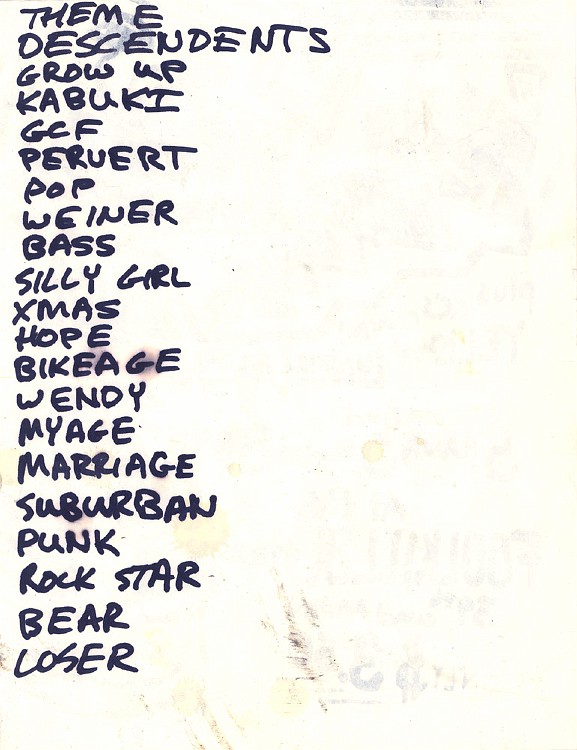 THEME
DESCENDENTS
GROW UP
KABUKI
GCF
PERVERT
POP
WEINER
BASS
SILLY GIRL
XMAS
HOPE
BIKEAGE
WENDY
MYAGE
MARRIAGE
SUBURBAN
PUNK
ROCK STAR
BEAR
LOSER